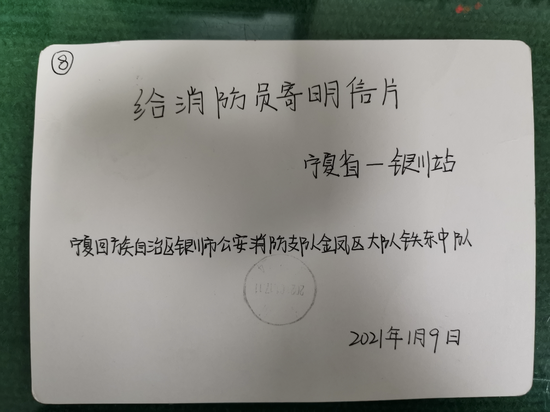 ⑧
给消防员寄明信片
宁夏省—银川站
宁夏回族自治区银川市公安消防支队金凤区大队铁东中队
2021年1月9日